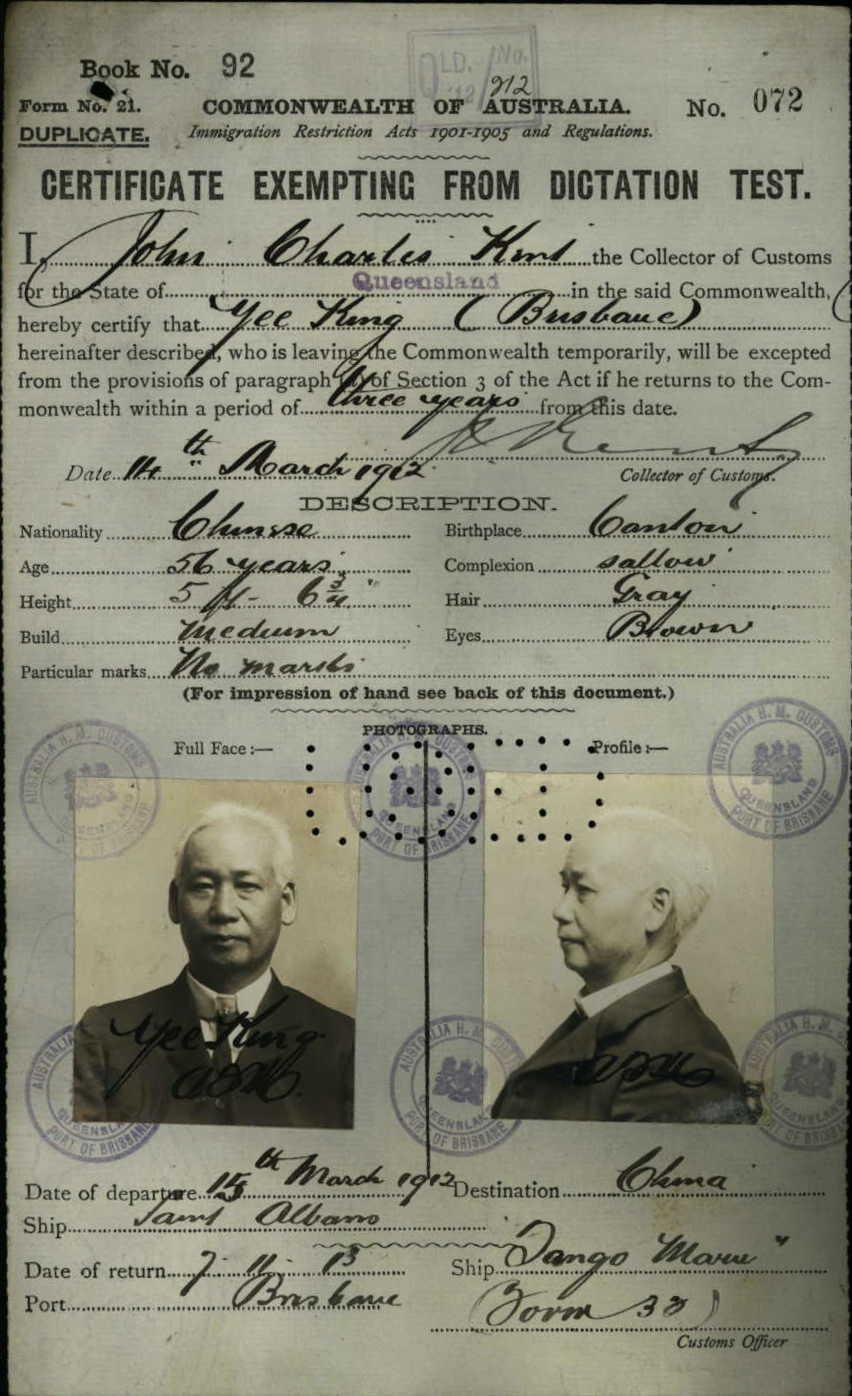 QLD. No.
Book No. 92
912
Form No. 21. COMMONWEALTH OF AUSTRALIA. No. 072
DUPLICATE. Immigration Restriction Acts 1901-1905 and Regulations.
CERTIFICATE EXEMPTING FROM DICTATION TEST.
I, John Charles Kent the Collector of Customs
for the State of Queensland in the said Commonwealth,
hereby certify that Yee King (Brisbane)
hereinafter described, who is leaving the Commonwealth temporarily, will be excepted
from the provisions of paragraph of Section 3 of the Act if he returns to the Com-
monwealth within a period of three years from this date.
Date 14th March 1912 Collector of Customs.
DESCRIPTION.
Nationality Chinese Birthplace Canton
Age 56 years Complexion sallow
Height 5 ft - 6¾" Hair Gray
Build Medium Eyes Brown
Particular marks No marks
(For impression of hand see back of this document.)
PHOTOGRAPHS.
Full Face :— Profile :—
AUSTRALIA H. M. CUSTOMS QUEENSLAND PORT OF BRISBANE
AUSTRALIA H. M. CUSTOMS QUEENSLAND PORT OF BRISBANE
Yee King
Date of departure 15th March 1912 Destination China
Ship Saint Albans
Date of return 7 . 11 . 13 Ship "Tango Maru"
Port Brisbane (Form 33)
Customs Officer